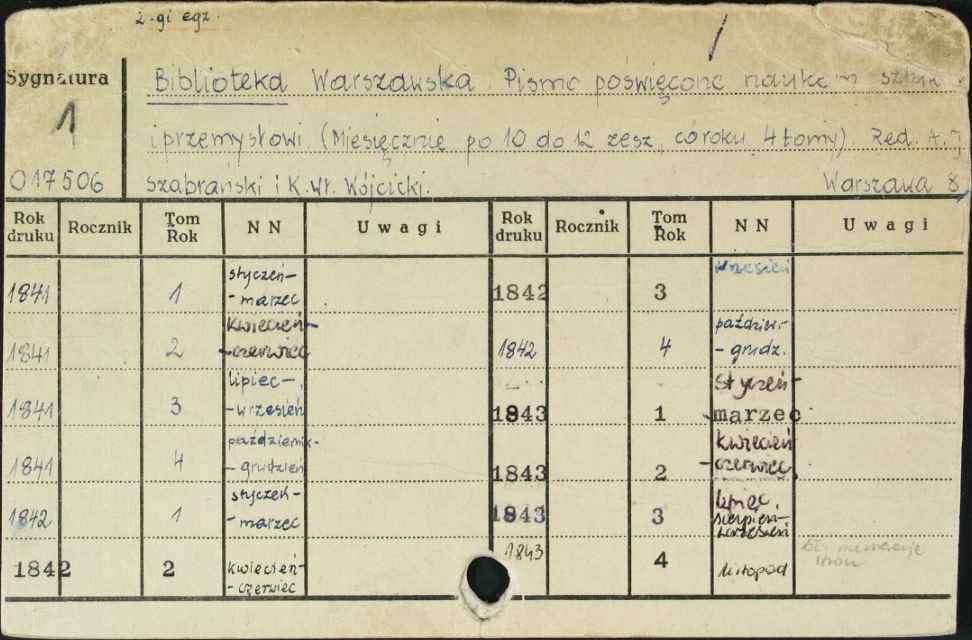 2-gi egz.
Sygnatura
1
017506
Biblioteka Warszawska. Pismo poświęcone naukom sztuk.
i przemysłowi. (Miesięcznie po 10 do 12 zesz. co roku 4 tomy) Red. A. J.
Szabrański i K. Wł. Wójcicki.
Warszawa 8
Rok druku Rocznik Tom Rok N N Uwagi Rok druku Rocznik Tom Rok N N Uwagi
1841 1 styczeń- - marzec
1841 2 kwiecień- -czerwiec
1841 3 lipiec- -wrzesień
1841 4 październik- - grudzień
1842 1 styczeń- - marzec
1842 2 kwiecień- -czerwiec
1842 3 wrzesień
1842 4 paździer- - grudz.
1843 1 styczeń- marzec
1843 2 kwiecień -czerwiec
1843 3 lipiec sierpień- wrzesień
1843 4 listopad